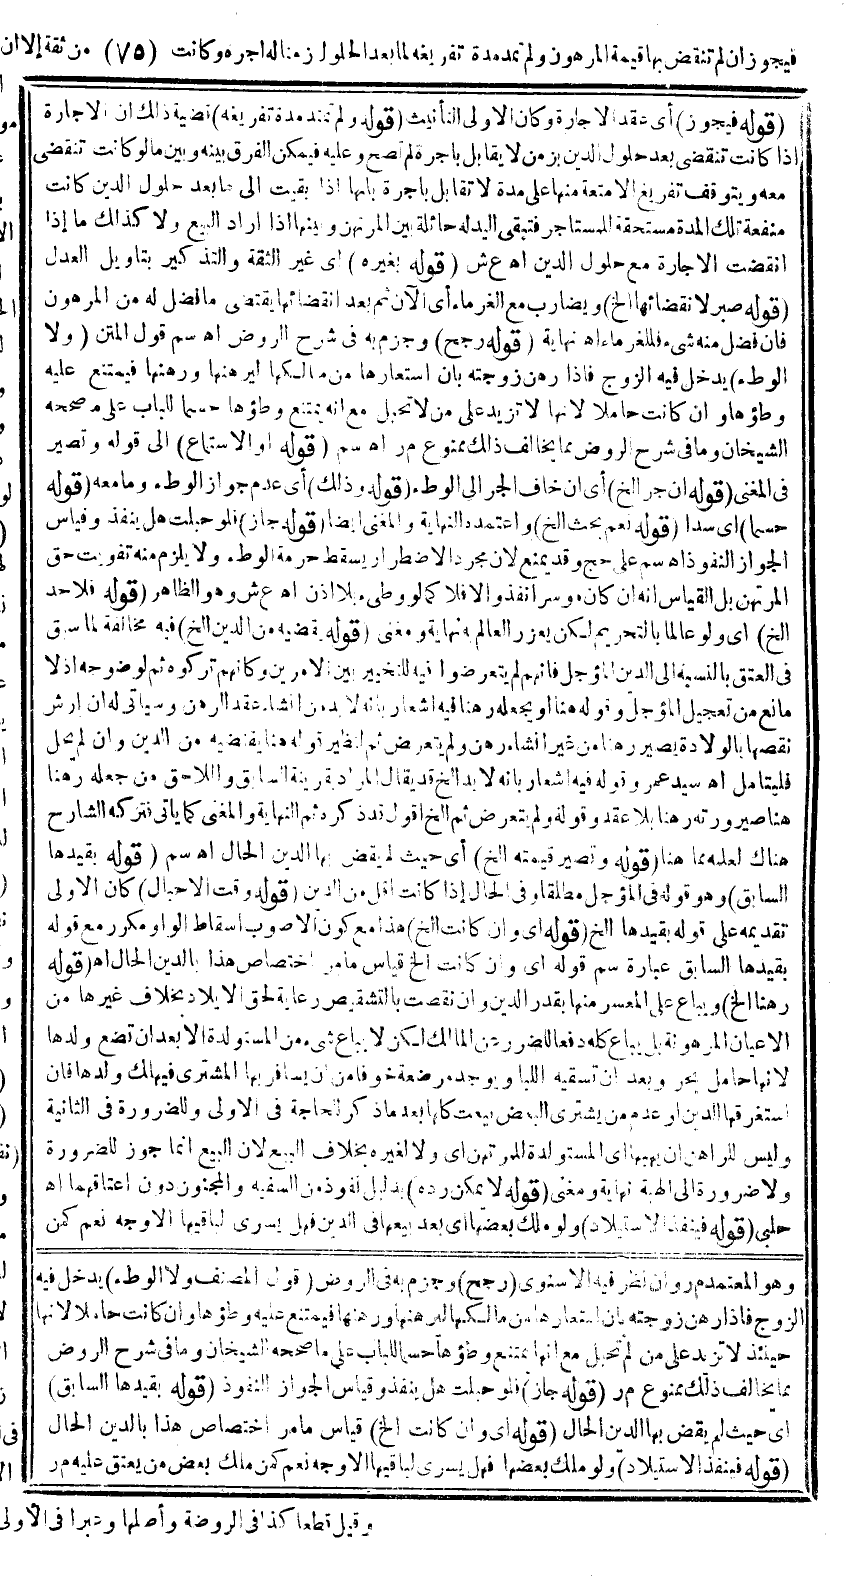 فيجوز ان لم تنقض بها قيمة المرهون ولم تمتد مدة تفريغه لما بعد الحلول زمنا له اجره وكانت (٧٥) من ثقة إلا ان
(قوله فيجوز) أى عقد الاجارة وكان الاولى التأنيث (قوله ولم تمتد مدة تفريغه) قضية ذلك ان الاجارة
اذا كانت تنقضى بعد حلول الدين بزمن لا يقابل باجرة لم تصح وعليه فيمكن الفرق بينه وبين مالو كانت تنقضى
معه ويتوقف تفريغ الامتعة منها على مدة لا تقابل باجرة بانها اذا بقيت الى ما بعد حلول الدين كانت
منفعة تلك المدة مستحقة للمستاجر فتبقى اليد له حائلة بين المرتهن وبينها اذا اراد البيع ولا كذلك ما إذا
انقضت الاجارة مع حلول الدين اه ع ش (قوله بغيره) اى غير الثقة والتذكير بتاويل العدل
(قوله صبر لانقضائها الخ) ويضارب مع الغرماء أى الآن ثم بعد انقضائها يقتضى ما فضل له من المرهون
فان فضل منه شىء فللغرماء اه نهاية (قوله رجح) وجزم به فى شرح الروض اه سم قول المتن (ولا
الوطء) يدخل فيه الزوج فاذا رهن زوجته بان استعارها من مالكها ليرهنها ورهنها فيمتنع عليه
وطؤها وان كانت حاملا لانها لا تزيد على من لا تحبل مع انه يمتنع وطؤها حسما للباب على ما صححه
الشيخان وما فى شرح الروض مما يخالف ذلك ممنوع م ر اه سم (قوله او الاستمتاع) الى قوله وتصير
فى المغنى (قوله ان جر الخ) أى ان خاف الجر الى الوطء (قوله وذلك) أى عدم جواز الوطء وما معه (قوله
حسما) اى سدا (قوله نعم بحث الخ) واعتمده النهاية والمغنى ايضا (قوله جاز) فلو حبلت هل ينفذ وقياس
الجواز النفوذ اه سم على حج وقد يمنع لان مجرد الاضطرار يسقط حرمة الوطء ولا يلزم منه تفويت حق
المرتهن بل القياس انه ان كان موسرا نفذ والا فلا كما لو وطىء بلا اذن اه ع ش وهو الظاهر (قوله فلا حد
الخ) اى ولو عالما بالتحريم لكن يعزر العالم به نهاية ومغنى (قوله يقضيه من الدين الخ) فيه مخالفة لما سبق
فى العتق بالنسبة الى الدين المؤجل فانهم لم يتعرضوا فيه للتخيير بين الامرين وكانهم تركوه ثم لوضوحه اذ لا
مانع من تعجيل المؤجل وقوله هنا او يجعله رهنا فيه اشعار بانه لا بد من انشاء عقد الرهن وسياتى له ان ارش
نقصها بالولادة يصير رهنا من غير انشاء رهن ولم يتعرض ثم لنظير قوله هنا يقضيه من الدين وان لم يحل
فليتامل اه سيد عمر وقوله فيه اشعار بانه لا بد الخ قد يقال المراد بقرينة السابق واللاحق من جعله رهنا
هنا صيرورته رهنا بلا عقد وقوله ولم يتعرض ثم الخ اقول قد ذكره ثم النهاية والمغنى كما ياتى فتركه الشارح
هناك لعلمه مما هنا (قوله وتصير قيمته الخ) أى حيث لم يقض بها الدين الحال اه سم (قوله بقيدها
السابق) وهو قوله فى المؤجل مطلقا وفى الحال إذا كانت اقل من الدين (قوله وقت الاحبال) كان الاولى
تقديمه على قوله بقيدها الخ (قوله اى وان كانت الخ) هذا مع كون الاصوب اسقاط الواو مكرر مع قوله
بقيدها السابق عبارة سم قوله اى وان كانت الخ قياس ما مر اختصاص هذا بالدين الحال اه (قوله
رهنا الخ) ويباع على المعسر منها بقدر الدين وان نقصت بالتشقيص رعاية لحق الايلاد بخلاف غيرها من
الاعيان المرهونة بل يباع كله دفعا للضرر عن المالك لكن لا يباع شىء من المستولدة الا بعد ان تضع ولدها
لانها حامل بحر وبعد ان تسقيه اللبا ويوجد مرضعة خوفا من ان يسافر بها المشترى فيهلك ولدها فان
استغرقها الدين او عدم من يشترى البعض بيعت كلها بعد ما ذكر للحاجة فى الاولى وللضرورة فى الثانية
وليس للراهن ان يهبها اى المستولدة للمرتهن اى ولا لغيره بخلاف البيع لان البيع انما جوز للضرورة
ولا ضرورة الى الهبة نهاية ومغنى (قوله لا يمكن رده) بدليل نفوذه من السفيه والمجنون دون اعتاقهما اه
حلبى (قوله فينفذ الاستيلاد) ولو ملك بعضها اى بعد بيعها فى الدين فهل يسرى لباقيها الاوجه نعم كمن
وهو المعتمد م ر وان نظر فيه الاسنوى (رجح) وجزم به فى الروض (قول المصنف ولا الوطء) يدخل فيه
الزوج فاذا رهن زوجته بان استعارها من مالكها ليرهنها ورهنها فيمتنع عليه وطؤها وان كانت حاملا لانها
حينئذ لا تزيد على من لم تحبل مع انها يمتنع وطؤها حسما للباب على ما صححه الشيخان وما فى شرح الروض
مما يخالف ذلك ممنوع م ر (قوله جاز) فلو حبلت هل ينفذ وقياس الجواز النفوذ (قوله بقيدها السابق)
اى حيث لم يقض بها الدين الحال (قوله اى وان كانت الخ) قياس ما مر اختصاص هذا بالدين الحال
(قوله فينفذ الاستيلاد) ولو ملك بعضها فهل يسرى لباقيها الاوجه نعم كمن ملك بعض من يعتق عليه م ر
وقيل قطعا كذا فى الروضة وأصلها وعبرا فى الاولى